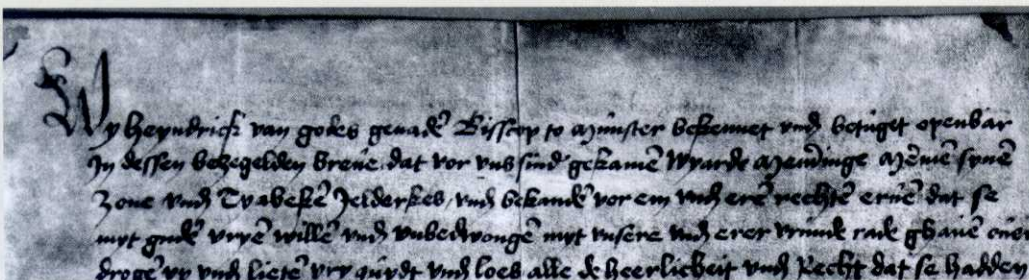 Wy heyndrick van godes genadē Bisscop to Munster bekennet vnd betuget openbar
In dessen besegelden breue dat vor vns sind gekamē Wyarde Mēninge Mēnē synē
Zone vnd Tyabekē Jelderkes vnd bekandē vor em vnd erē rechtē eruē dat se
myt gudē vryē willē vnd vnbedwongē myt vnsere vnd erer vrunde rade ghauē
drogē vp vnd lietē vry quydt vnd loes alle de heerlicheit vnd Recht dat se hadden